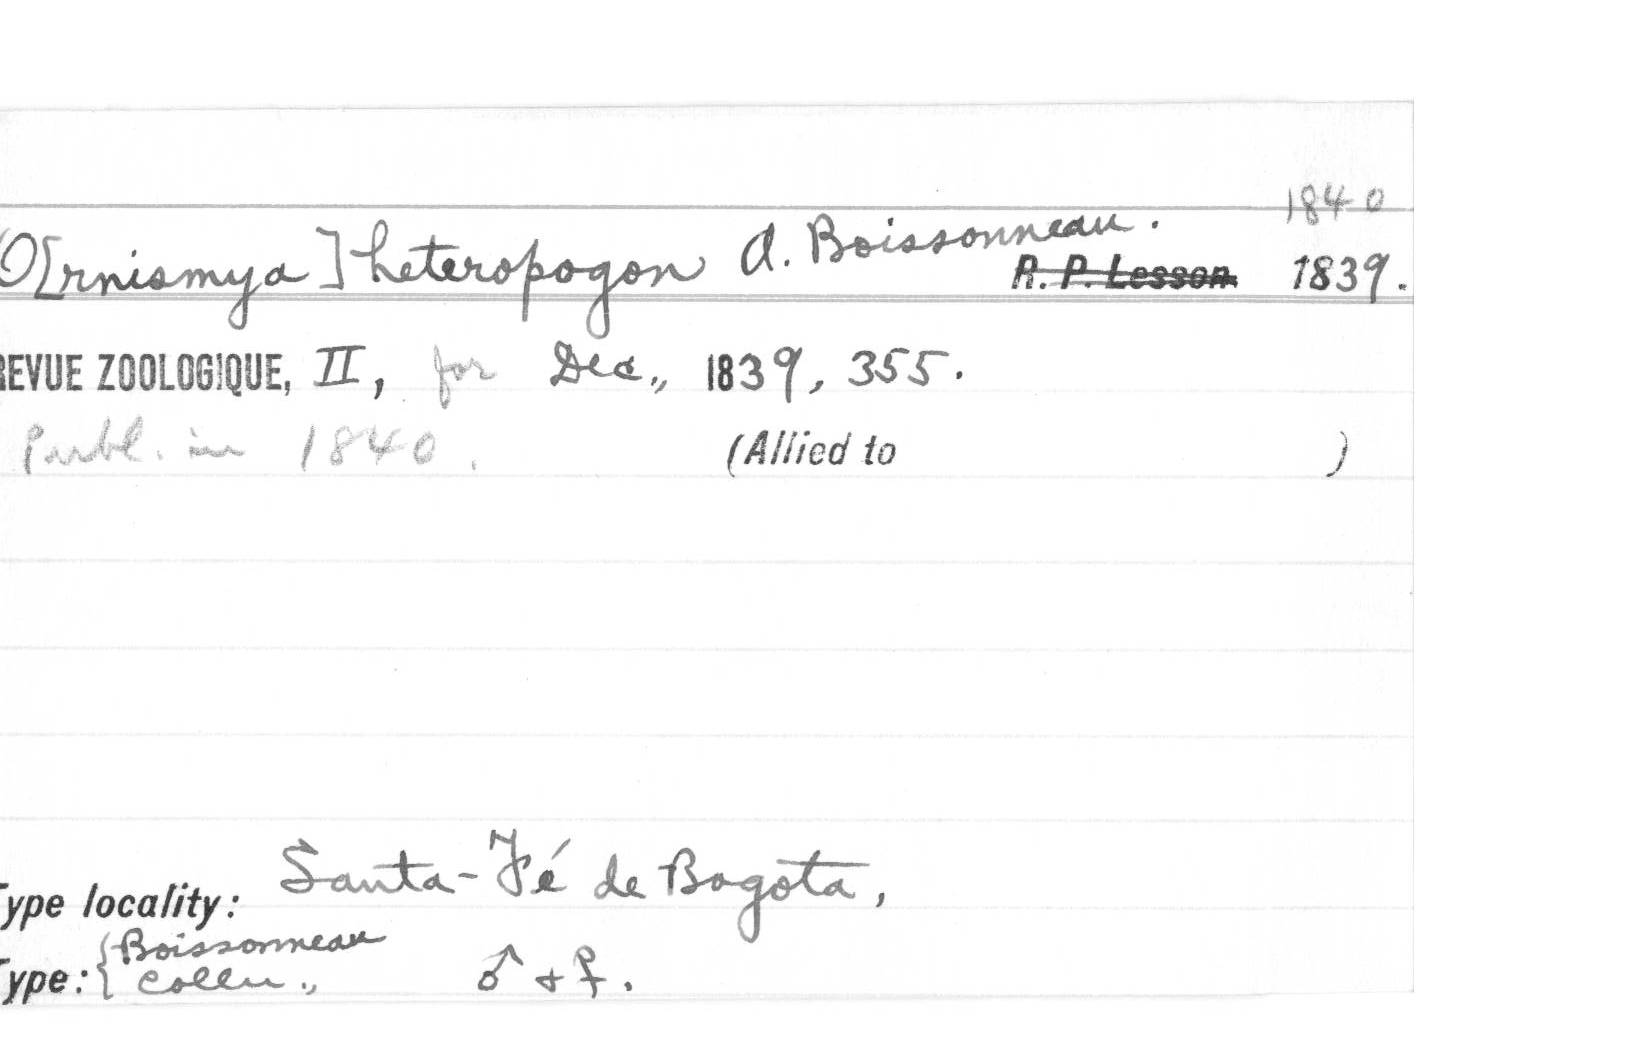 1840
O[rnismya] heteropogon A. Boissonneau.
R. P. Lesson 1839.
REVUE ZOOLOGIQUE, II, for Dec., 1839, 355.
Publ. in 1840. (Allied to )
Type locality: Santa-Fé de Bogota,
Type: { Boissonneau
Colln., ♂ + ♀.